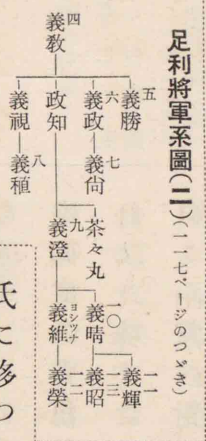 足利將軍系圖(二)(一一七ページのつゞき)
四
義教
五
義勝
六
義政
七
義尙
政知
茶々丸
九
義澄
一〇
義晴
一一
義輝
一三
義昭
義維
ヨシツナ
一二
義榮
義視
八
義稙
氏に移つ